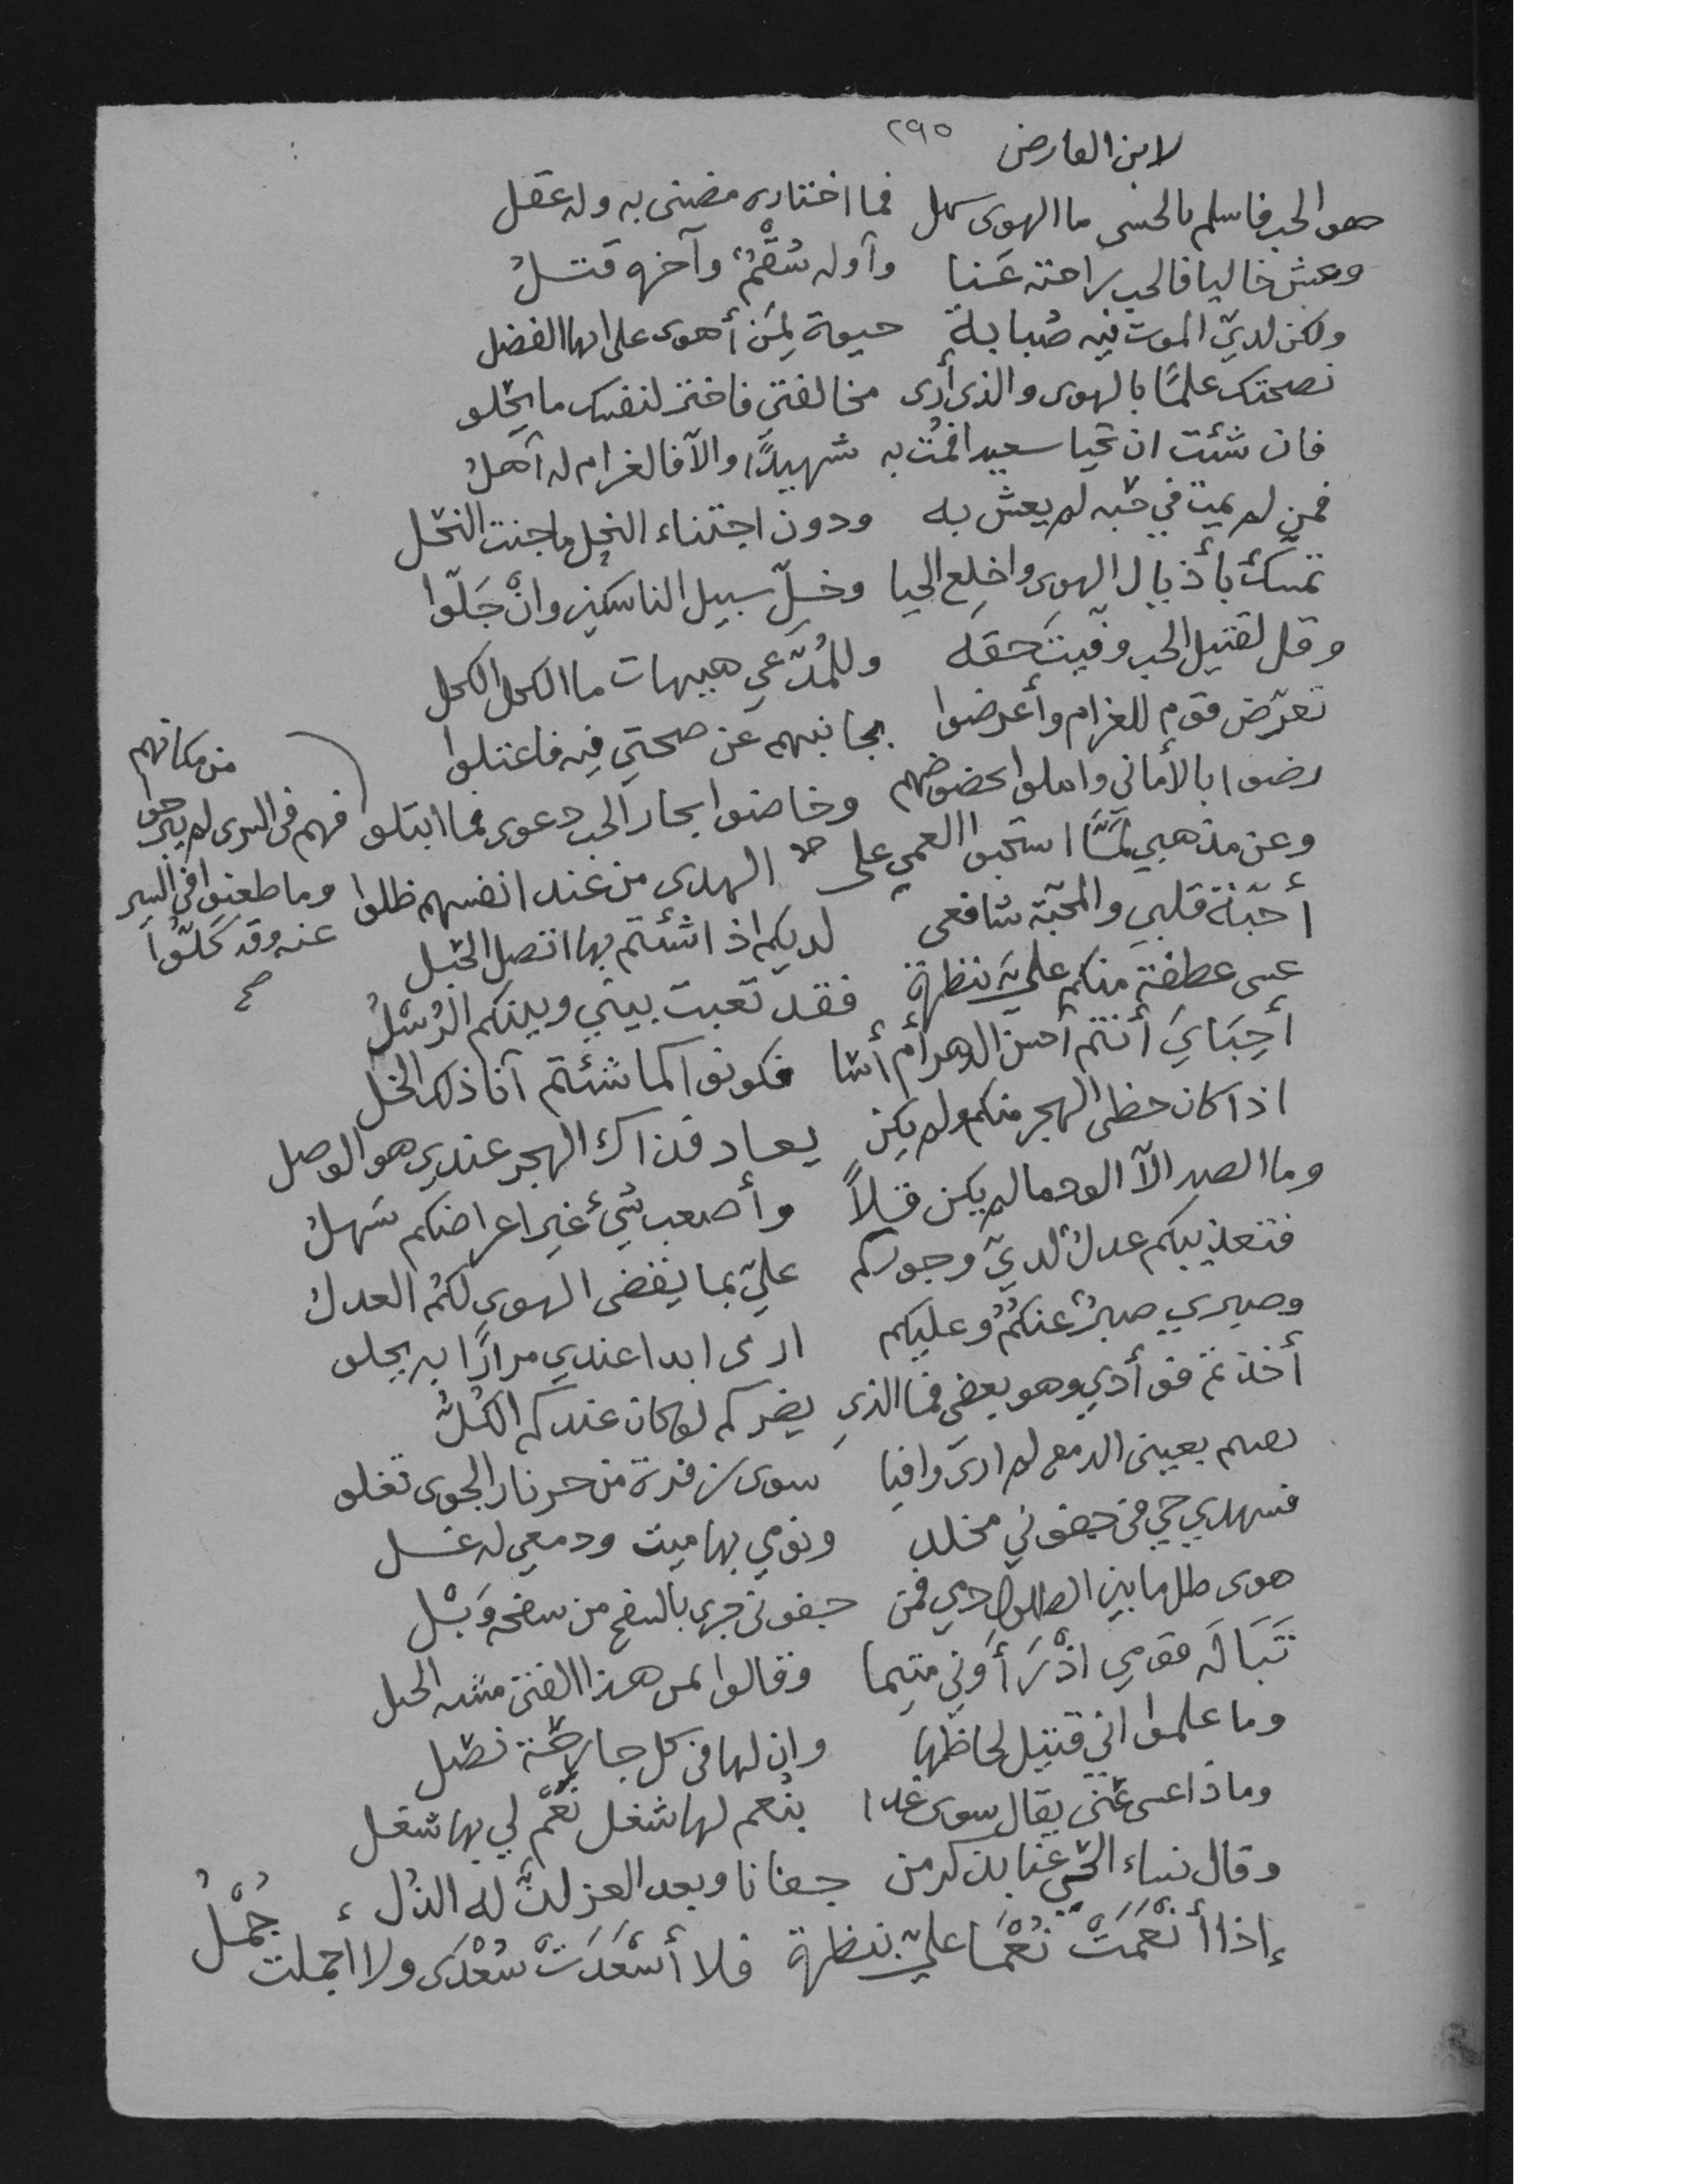 لابن الفارض ٢٩٥
هو الحب فاسلم بالحسى ما الهوى سهل فما اختاره مضنى به وله عقل
وعش خاليا فالحب راحته عَنا وأوله سُقْمٌ وآخره قتلُ
ولكن لديّ الموت فيه صُبابة حيوة لِمَن أهوى على بها الفضل
نصحتك علمًا بالهوى والذي أرى مخالفتي فاختر لنفسك ما يحلو
فان شئت ان تحيا سعيدا فمُت به شهيدًا والآ فالغرام له أهلُ
فمن لم يمت في حبّه لم يعش به ودون اجتناء النحل ما جنت النحل
تمسّك بأذيال الهوى واخلع الحيا وخلِّ سبيل الناسكين وانْ جَلّوا
وقل لقتيل الحب وفّيتَ حقه وللمُدّعي هيهات ما الكحل الكحل
تعرّض قوم للغرام وأعرضوا بجانبهم عن صحتي فيه فاعتلوا
رضوا بالأماني وابتلوا بحضوضهم وخاضوا بحار الحب دعوى فما ابتلو
فهم في السرى لم يبرحوا من مكانهم
وما ظعنوا في السير عنه وقد كَلّوا صح
وعن مذهبي لمَّا استحبوا العمى على الهدى من عند انفسهم ظلوا
أحبّة قلبي والمحبّة شافعى لديكم اذا شئتم بها اتصل الحَبل
عسى عطفة منكم عليّ بنظرة فقد تعبت بيني وبينكم الرُسْلُ
أحِبَايَ أنتم أحسن الدهر أم أسَا فكونوا كما شئتم أنا ذلك الخل
اذا كان حظى الهجر منكم ولم يكن يعاد فذاك الهجر عندي هو الوصل
وما الصد الآ الود ما لم يكن قلاً وأصعب شئ غير اعراضكم سَهلُ
فتعذيبكم عدلٌ لديّ وجوركم عليّ بما يقضى الهوى لكُم العدلُ
وصبري صبرٌ عنكُمُ وعليكم ارى ابدا عندي مرارًا به يحلو
أخذتم فؤادي وهو بعضي فما الذي يضركم لو كان عندكم الكُلُّ
بعينى الدمع لم ارى وافيا سوى زفرة من حر نار الجوى تغلو
فسهدي حي في جفوني مخلد ونومي بها ميت ودمعي له غسل
هوى طل ما بين الطلول دمي فمن جفوني جرى بالسفح من سفحه وَبْل
تَبَالَه قومي اذْ رَأَوني متيما وقالوا بمن هذا الفتى مسه الخبل
وما علموا اني قتيل لحاظها وان لها في كل جارحة نصل
وماذا عسى عنّى يقال سوى غدا بنُعم لها شغل نَعَمْ لي بها شغل
وقال نساء الحيّ عنا بذكر من جفانا وبعد العز لذّ له الذل
إذا أنْعَمَتْ نُعْمَا عليّ بنظرة فلا أسْعَدَتْ سُعْدَى ولا اجملت جُمْلُ